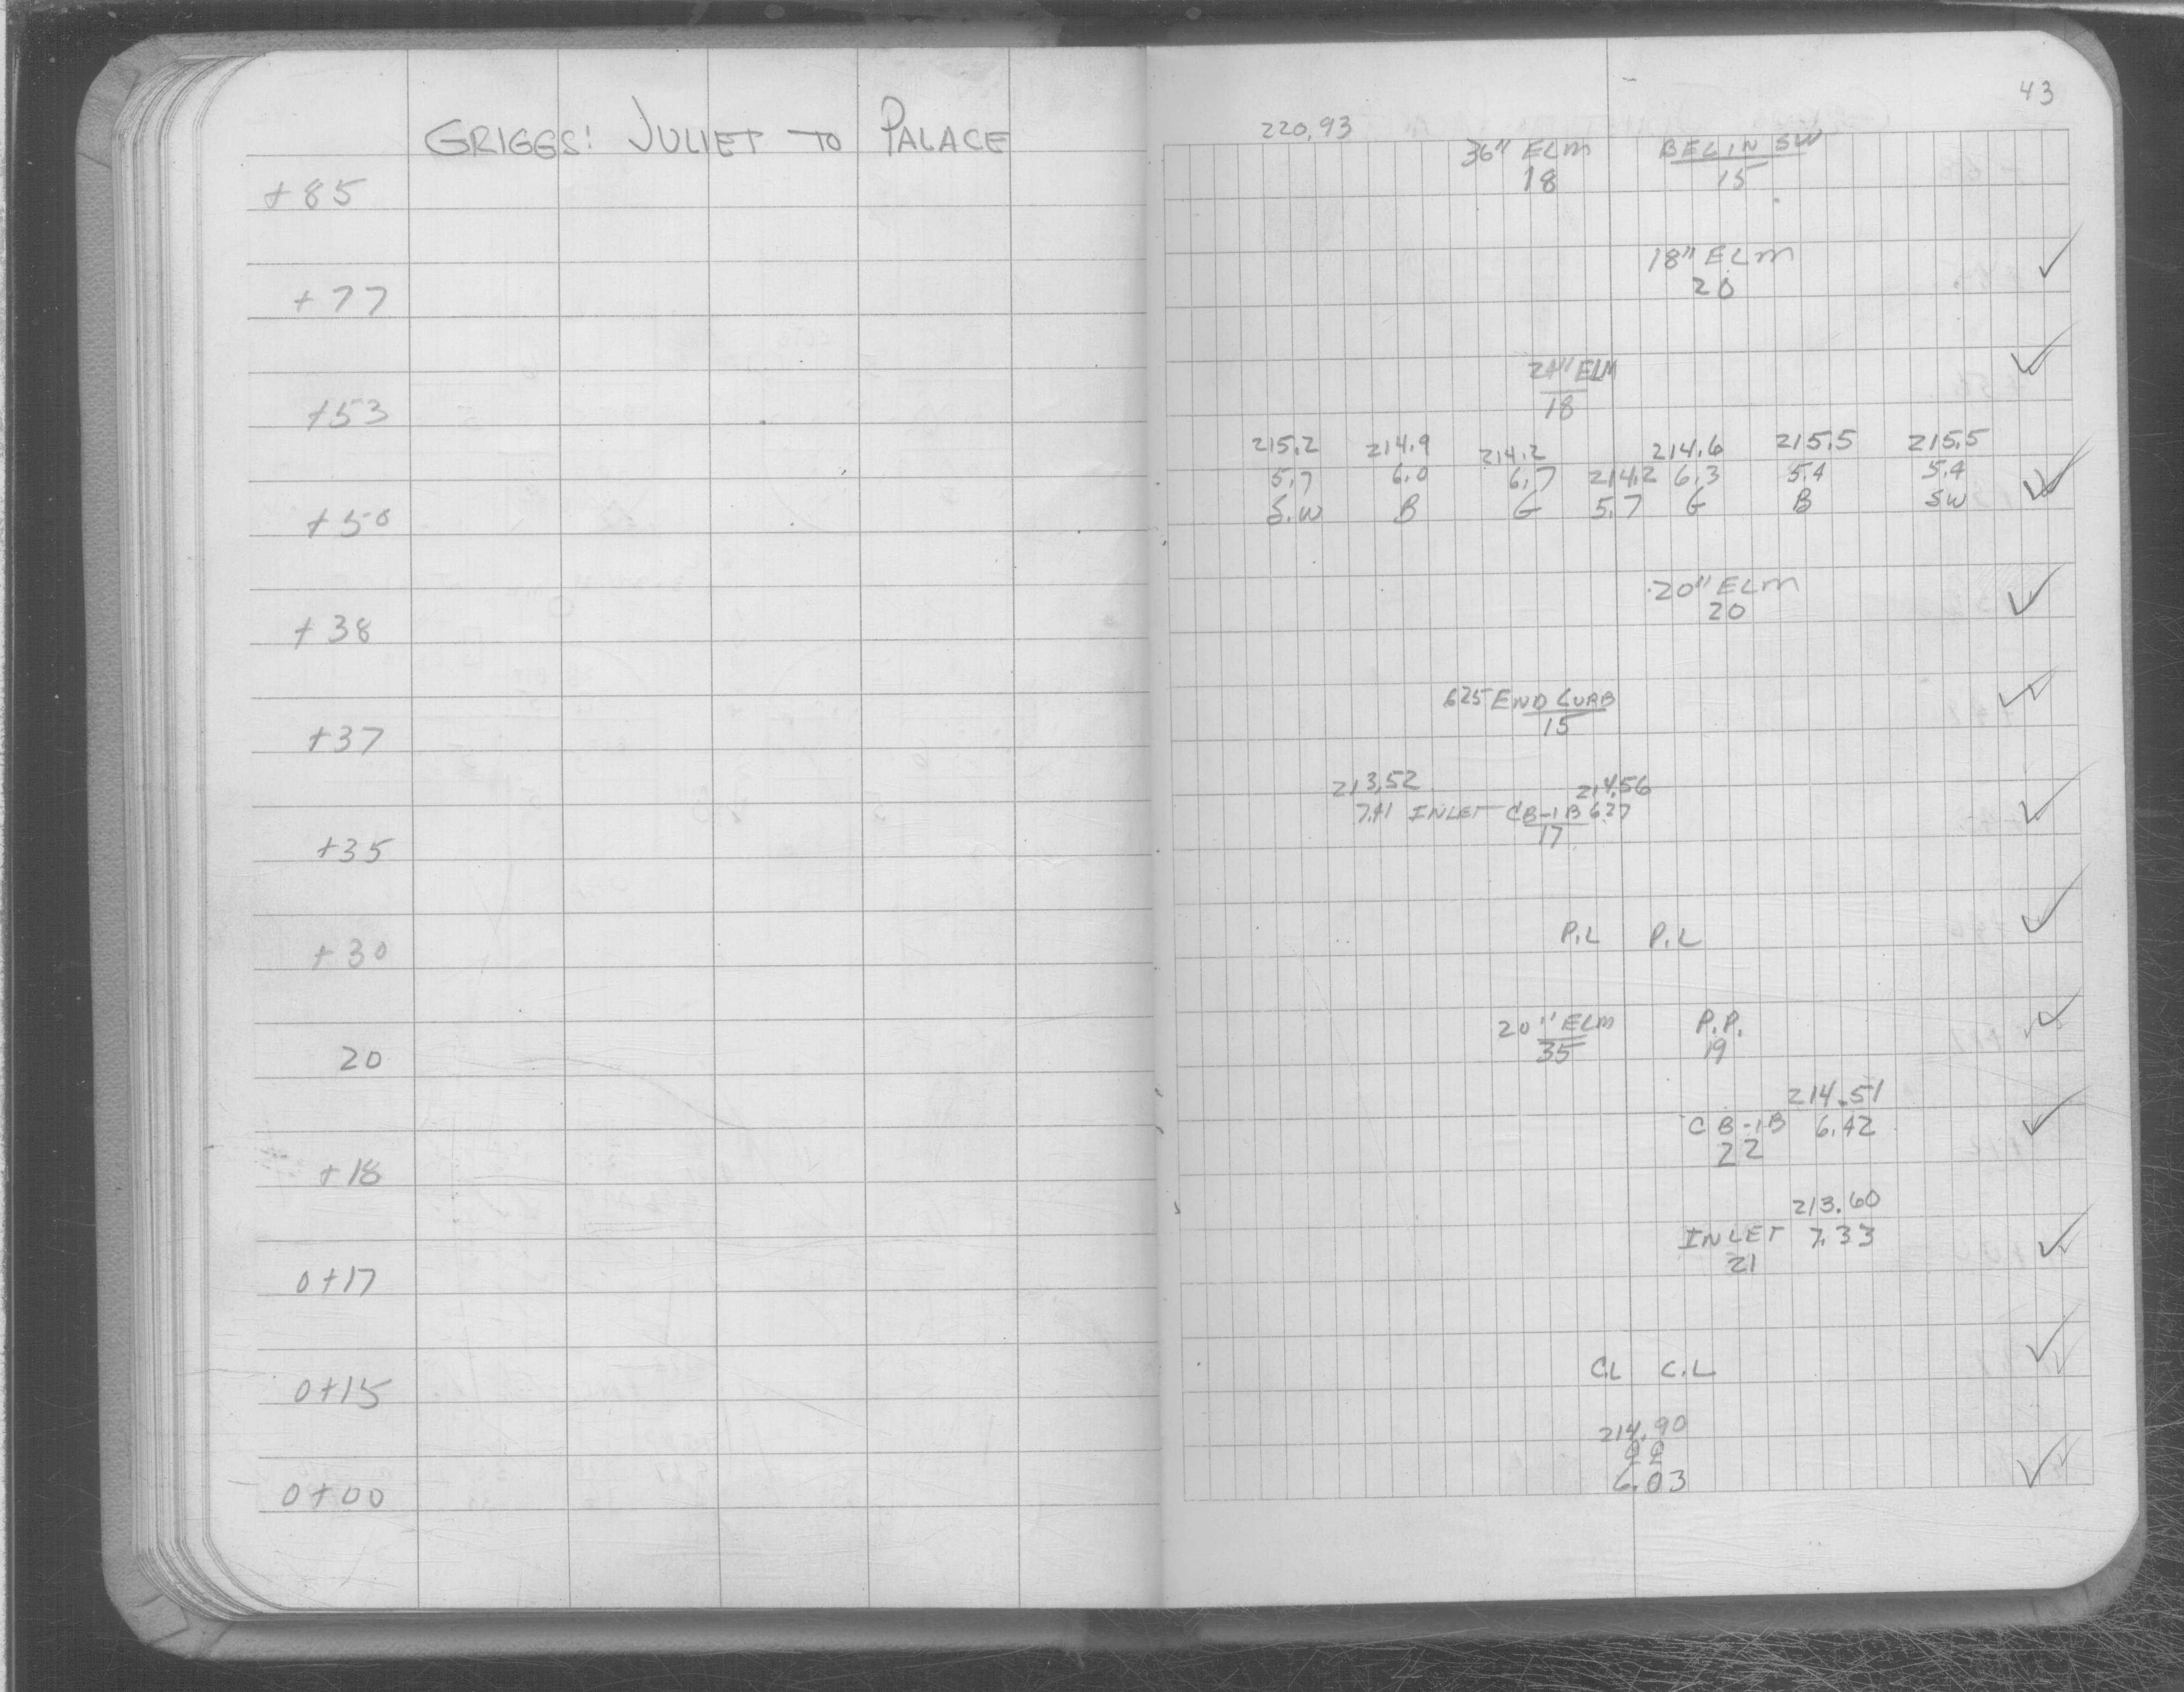 43
GRIGGS: JULIET TO PALACE
220.93
36" ELM BEGIN SW
+85 18 15
18" ELM
+77 20
ELM
+53 18
215.2 214.9 214.2 214.6 215.5 215.5
5.7 6.0 6.7 214.2 6.3 5.4 5.4
+50 S.W B G 5.7 G B SW
20" ELM
+38 20
625 END CURB
+37 15
213.52 214.56
7.41 INLET CB-1B 6.37
+35 17
+30 P.L P.L
20" ELM P.P.
20 35 19
214.51
CB-1B 6.42
+18 22
213.60
INLET 7.33
0+17 21
0+15 C.L C.L
214.90
0+00 6.03